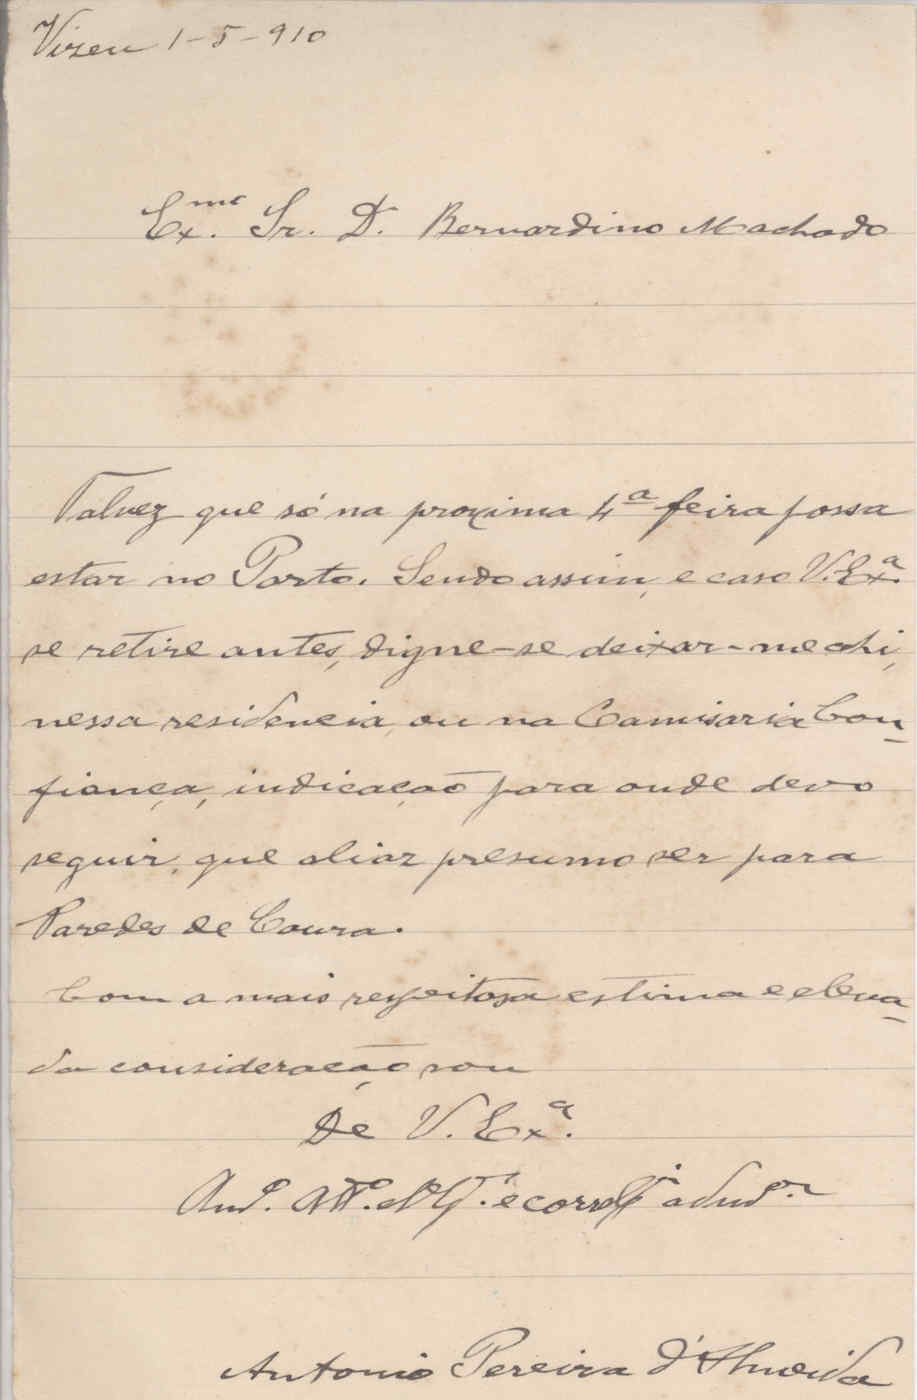 Vizeu 1-5-910
Ex.mo Sr. D. Bernardino Machado
Talvez que só na proxima 4ª feira possa
estar no Porto. Sendo assim, e caso V. Exª.
se retire antes, digne-se deixar-me ahi,
nessa residencia, ou na Camisaria Con-
fiança, indicação para onde devo
seguir, que aliaz presumo ser para
Paredes de Coura.
Com a mais respeitosa estima e eleva-
da consideração sou
De V. Exª.
Am.º Att.º e
Antonio Pereira d'Almeida